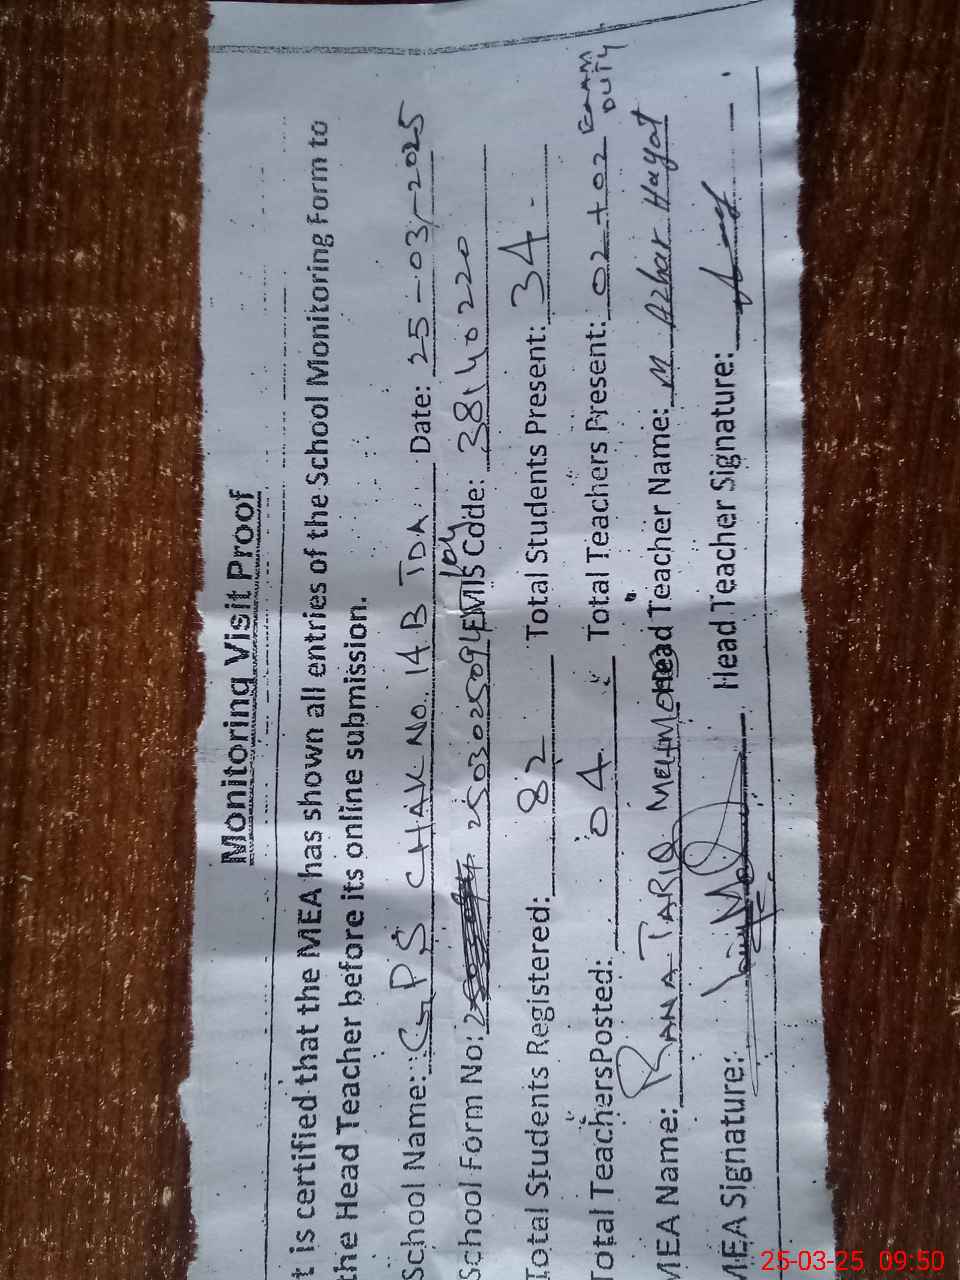 Monitoring Visit Proof
t is certified that the MEA has shown all entries of the School Monitoring Form to
the Head Teacher before its online submission.
School Name: GPS CHAK No. 14 B TDA. Date: 25-03-2025
School Form No: 2503025094 104 EMIS Code: 38140220
Total Students Registered: 82 Total Students Present: 34
Total Teachers Posted: 04 Total Teachers Present: 02+02 EXAM DUTY
MEA Name: RANA TARIQ MEHMOOD Head Teacher Name: M Azhar Hayat
MEA Signature: Head Teacher Signature:
25-03-25 09:50